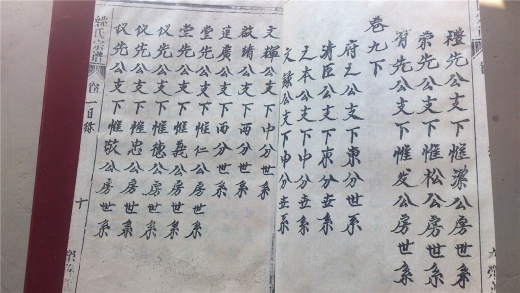 禮先公支下惟梁公房世系
榮先公支下惟松公房世系
賢先公支下惟发公房世系
卷九下
府之公支下東分世系
清臣公支下東分世系
之本公支下中分世系
文錄公支下中分世系
文輝公支下中分世系
啟緒公支下西分世系
筵廣公支下西分世系
堂先公支下惟仁公房世系
堂先公支下惟義公房世系
仪先公支下惟德公房世系
仪先公支下惟忠公房世系
仪先公支下惟敬公房世系
氏宗譜
卷一目錄
十